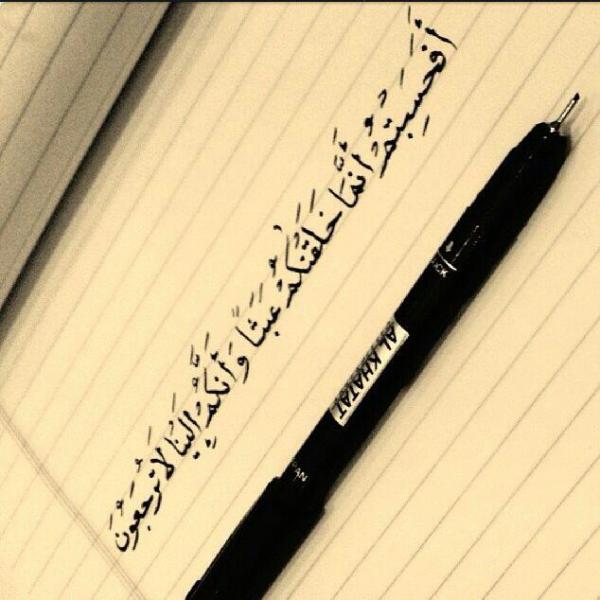 أَفَحَسِبْتُمْ أَنَّمَا خَلَقْنَٰكُمْ عَبَثًا وَأَنَّكُمْ إِلَيْنَا لَا تُرْجَعُونَ
AL KHATAT